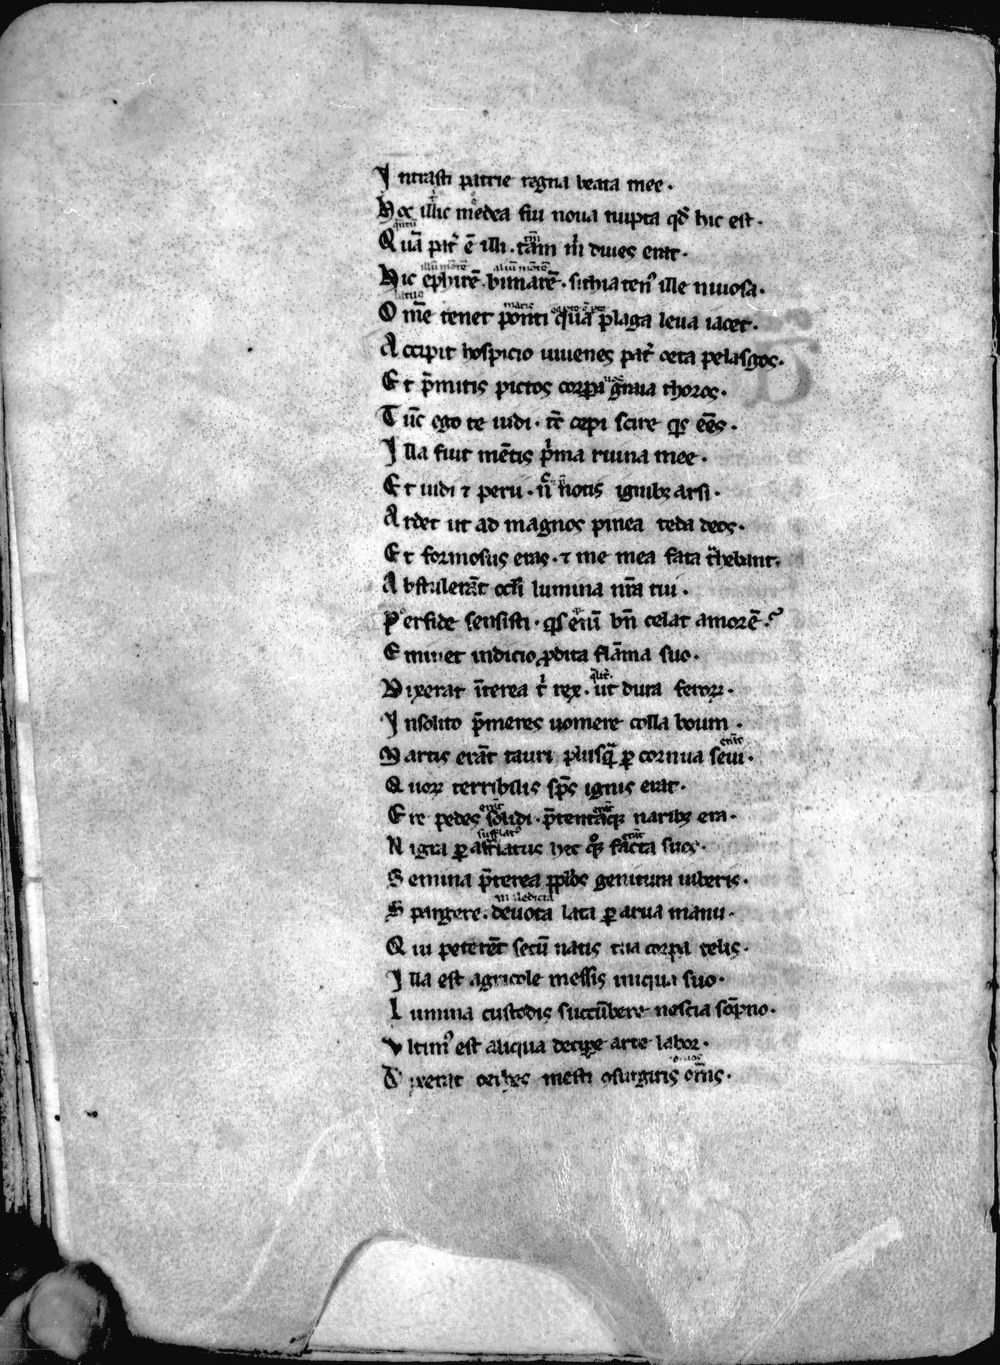 Intrasti patrie regna beata mee.
Hoc illic medea fui noua nupta qđ hic est.
Quã pat̾ ẽ illi. tãm m̃ diues erat.
illũ
Hic ephirẽ. bimarẽ. sithia ten⁹ ille niuosa.
latus maris
Omẽ tenet ponti quã plaga leua iacet.
Accipit hospicio iuuenes pat̾ oeta pelasgos.
Et p̃mitis pictos corpa graia thoros.
Tũc ego te uidi. tc̃ cepi scire qͥs eẽs.
Illa fuit mẽtis pͥma ruina mee.
Et uidi ⁊ perii. ñ notis ignibꝫ arsi.
Ardet ut ad magnos pinea teda deos.
Et formosus eras. ⁊ me mea fata t̃hebant.
Abstulerãt ocłi lumina nr̃a tui.
Perfide sensisti. qͥs eñi bñ celat amorẽ?
Eminet indicio ꝓdita flãma suo.
Dixerat ĩterea tͥ rex. ut dura feroꝝ.
Insolito p̃meres uomere colla boum.
erãt
Martis erãt tauri plusq̃ ꝑ cornua seui.
Quoꝝ terribilis sp̃s ignis erat.
erãt erãt
Ere pedes solidi. p̃tentaqꝫ naribꝫ era.
sufflatꝰ
Nigra ꝑ afflatus hec qͦqꝫ facta suos.
Semina p̃terea ppłos genitura iuberis.
maledicta
Spargere. deuota lata ꝑ arua manu.
Qui peterẽt secũ natis tua corpa telis.
Illa est agricole messis iniqua suo.
Lumina custodis succũbere nescia sõpno.
Vltim⁹ est aliqua decipe arte labor.
Dixerat oethes mesti ꝯsurgitis om̃s.